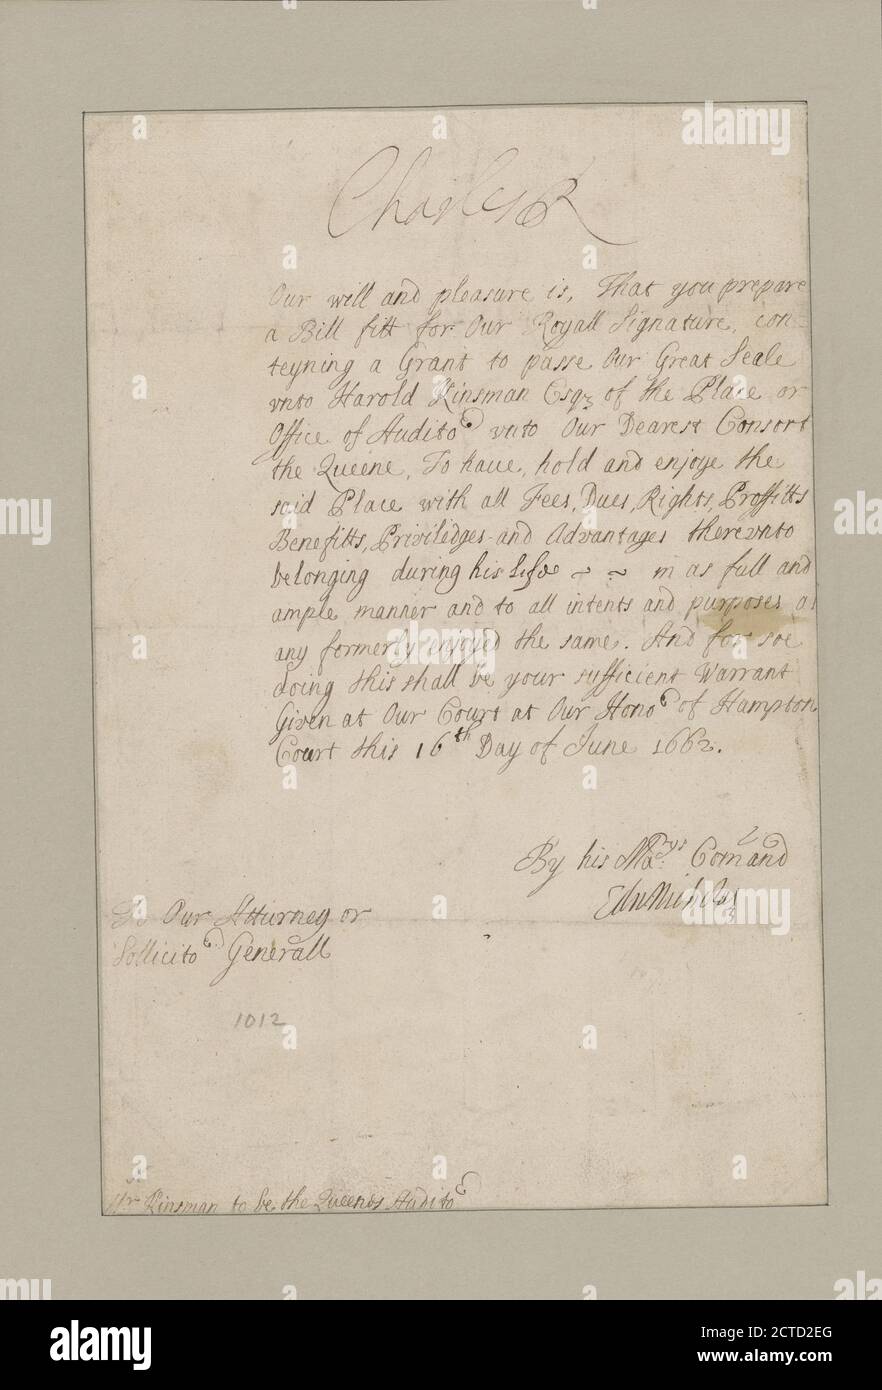 Charles R
Our will and pleasure is, That you prepare
a Bill fitt for Our Royall Signature, con=
teyning a Grant to passe Our Great Seale
vnto Harold Kinsman Esqz of the Place or
Office of Auditor vnto Our Dearest Consort
the Queene, To haue, hold and enjoye the
said Place with all Fees, Dues, Rights, Proffitts
Benefitts, Priviledges and Advantages therevnto
belonging during his life ~ ~ in as full and
ample manner and to all intents and purposes as
any formerly enjoyed the same. And for soe
doing this shall be your sufficient Warrant
Given at Our Court at Our Honor of Hampton
Court this 16th Day of June 1662.
By his Matys Comand
Edw Nicholas
To Our Atturney or
Sollicitor Generall
1012
Mr Kinsman to be the Queenes Auditor
alamy
alamy
alamy
alamy
alamy
Image ID: 2CTD2EG
www.alamy.com